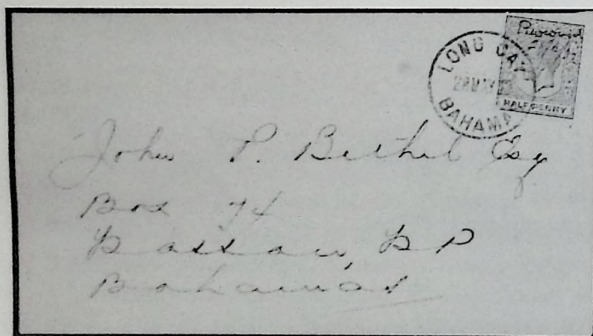 LONG CAY
BAHAMA
HALF PENNY
John P. Bethel Esq
Box 74
Nassau, N P
Bahamas